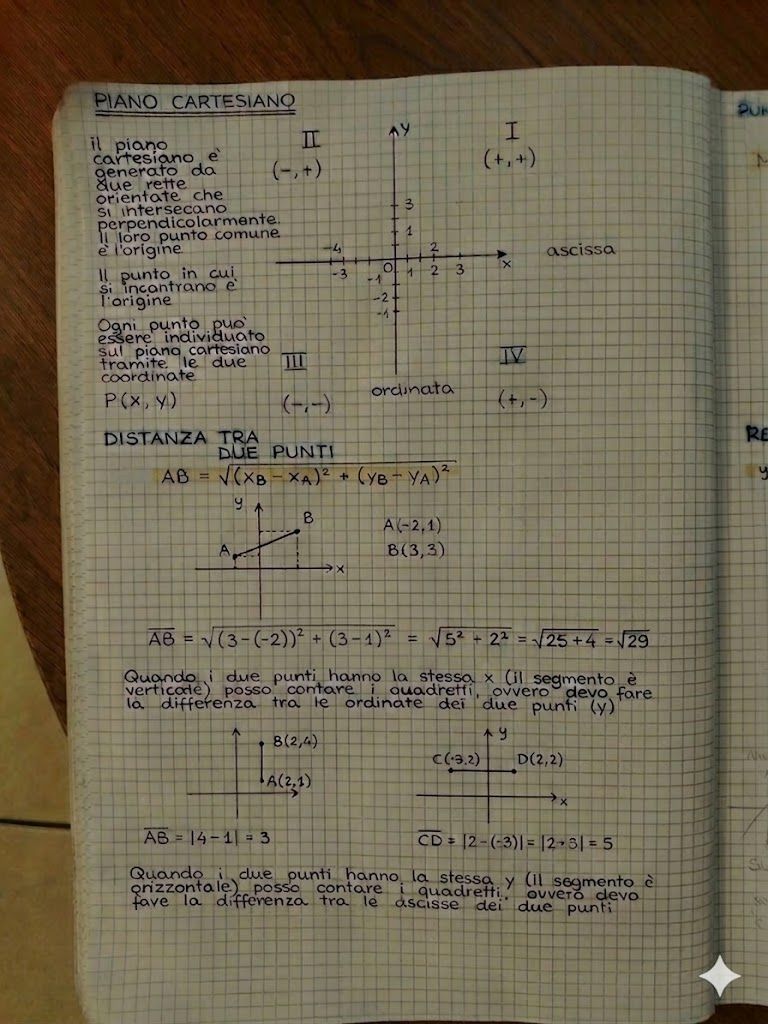 PIANO CARTESIANO
il piano
cartesiano e'
generato da
due rette
orientate che
si intersecano
perpendicolarmente.
Il loro punto comune
e' l'origine
Il punto in cui
si incontrano e'
l'origine
Ogni punto puo'
essere individuato
sul piano cartesiano
tramite le due
coordinate
P(x, y)
II
(-,+)
I
(+,+)
y
3
1
-4
2
ascissa
x
-3
O
-1
1 2 3
-2
-1
III
(-,-)
ordinata
IV
(+,-)
DISTANZA TRA
DUE PUNTI
AB = √(xB - xA)² + (yB - yA)²
y
B
A
x
A(-2,1)
B(3,3)
AB = √(3-(-2))² + (3-1)² = √5² + 2² = √25+4 = √29
Quando i due punti hanno la stessa x (il segmento è
verticale) posso contare i quadretti, ovvero devo fare
la differenza tra le ordinate dei due punti (y)
B(2,4)
A(2,1)
y
C(-3,2)
D(2,2)
x
AB = |4-1| = 3
CD = |2-(-3)| = |2+3| = 5
Quando i due punti hanno la stessa y (Il segmento è
orizzontale) posso contare i quadretti, ovvero devo
fave la differenza tra le ascisse dei due punti
PUN
M
RE
y